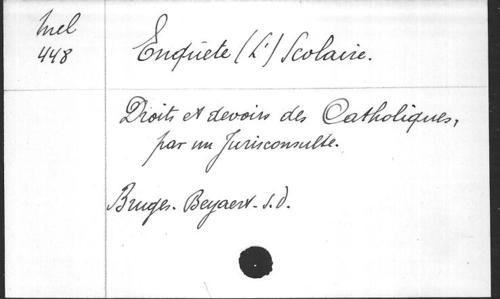 Mel
448
Enquete (L') Scolaire.
Droits et devoirs des Catholiques,
par un Jurisconsulte.
Bruges. Beyaert. S.D.